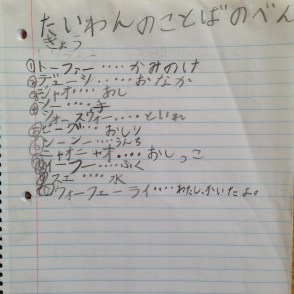 たいわんのことばのべん
きょう
①トーファー‥‥かみのけ
②デューシ‥‥‥おなか
③ジャオ‥‥あし
④ソー‥‥手
⑤ショースウォー‥‥といれ
⑥ピーグ‥‥おしり
⑦シーシー‥‥うんち
⑧ニャオニャオ‥‥おしっこ
⑨イーフー‥‥ふく
⑩スエ‥‥水
⑪ウォーフェーライ‥‥わたし、かいたよ。